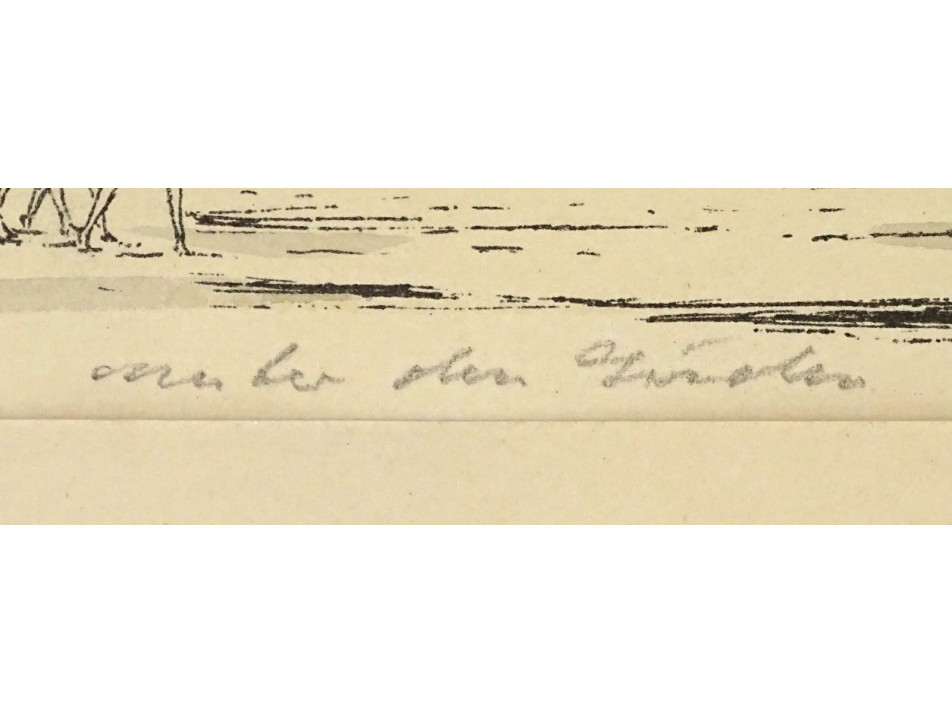 unter den Linden